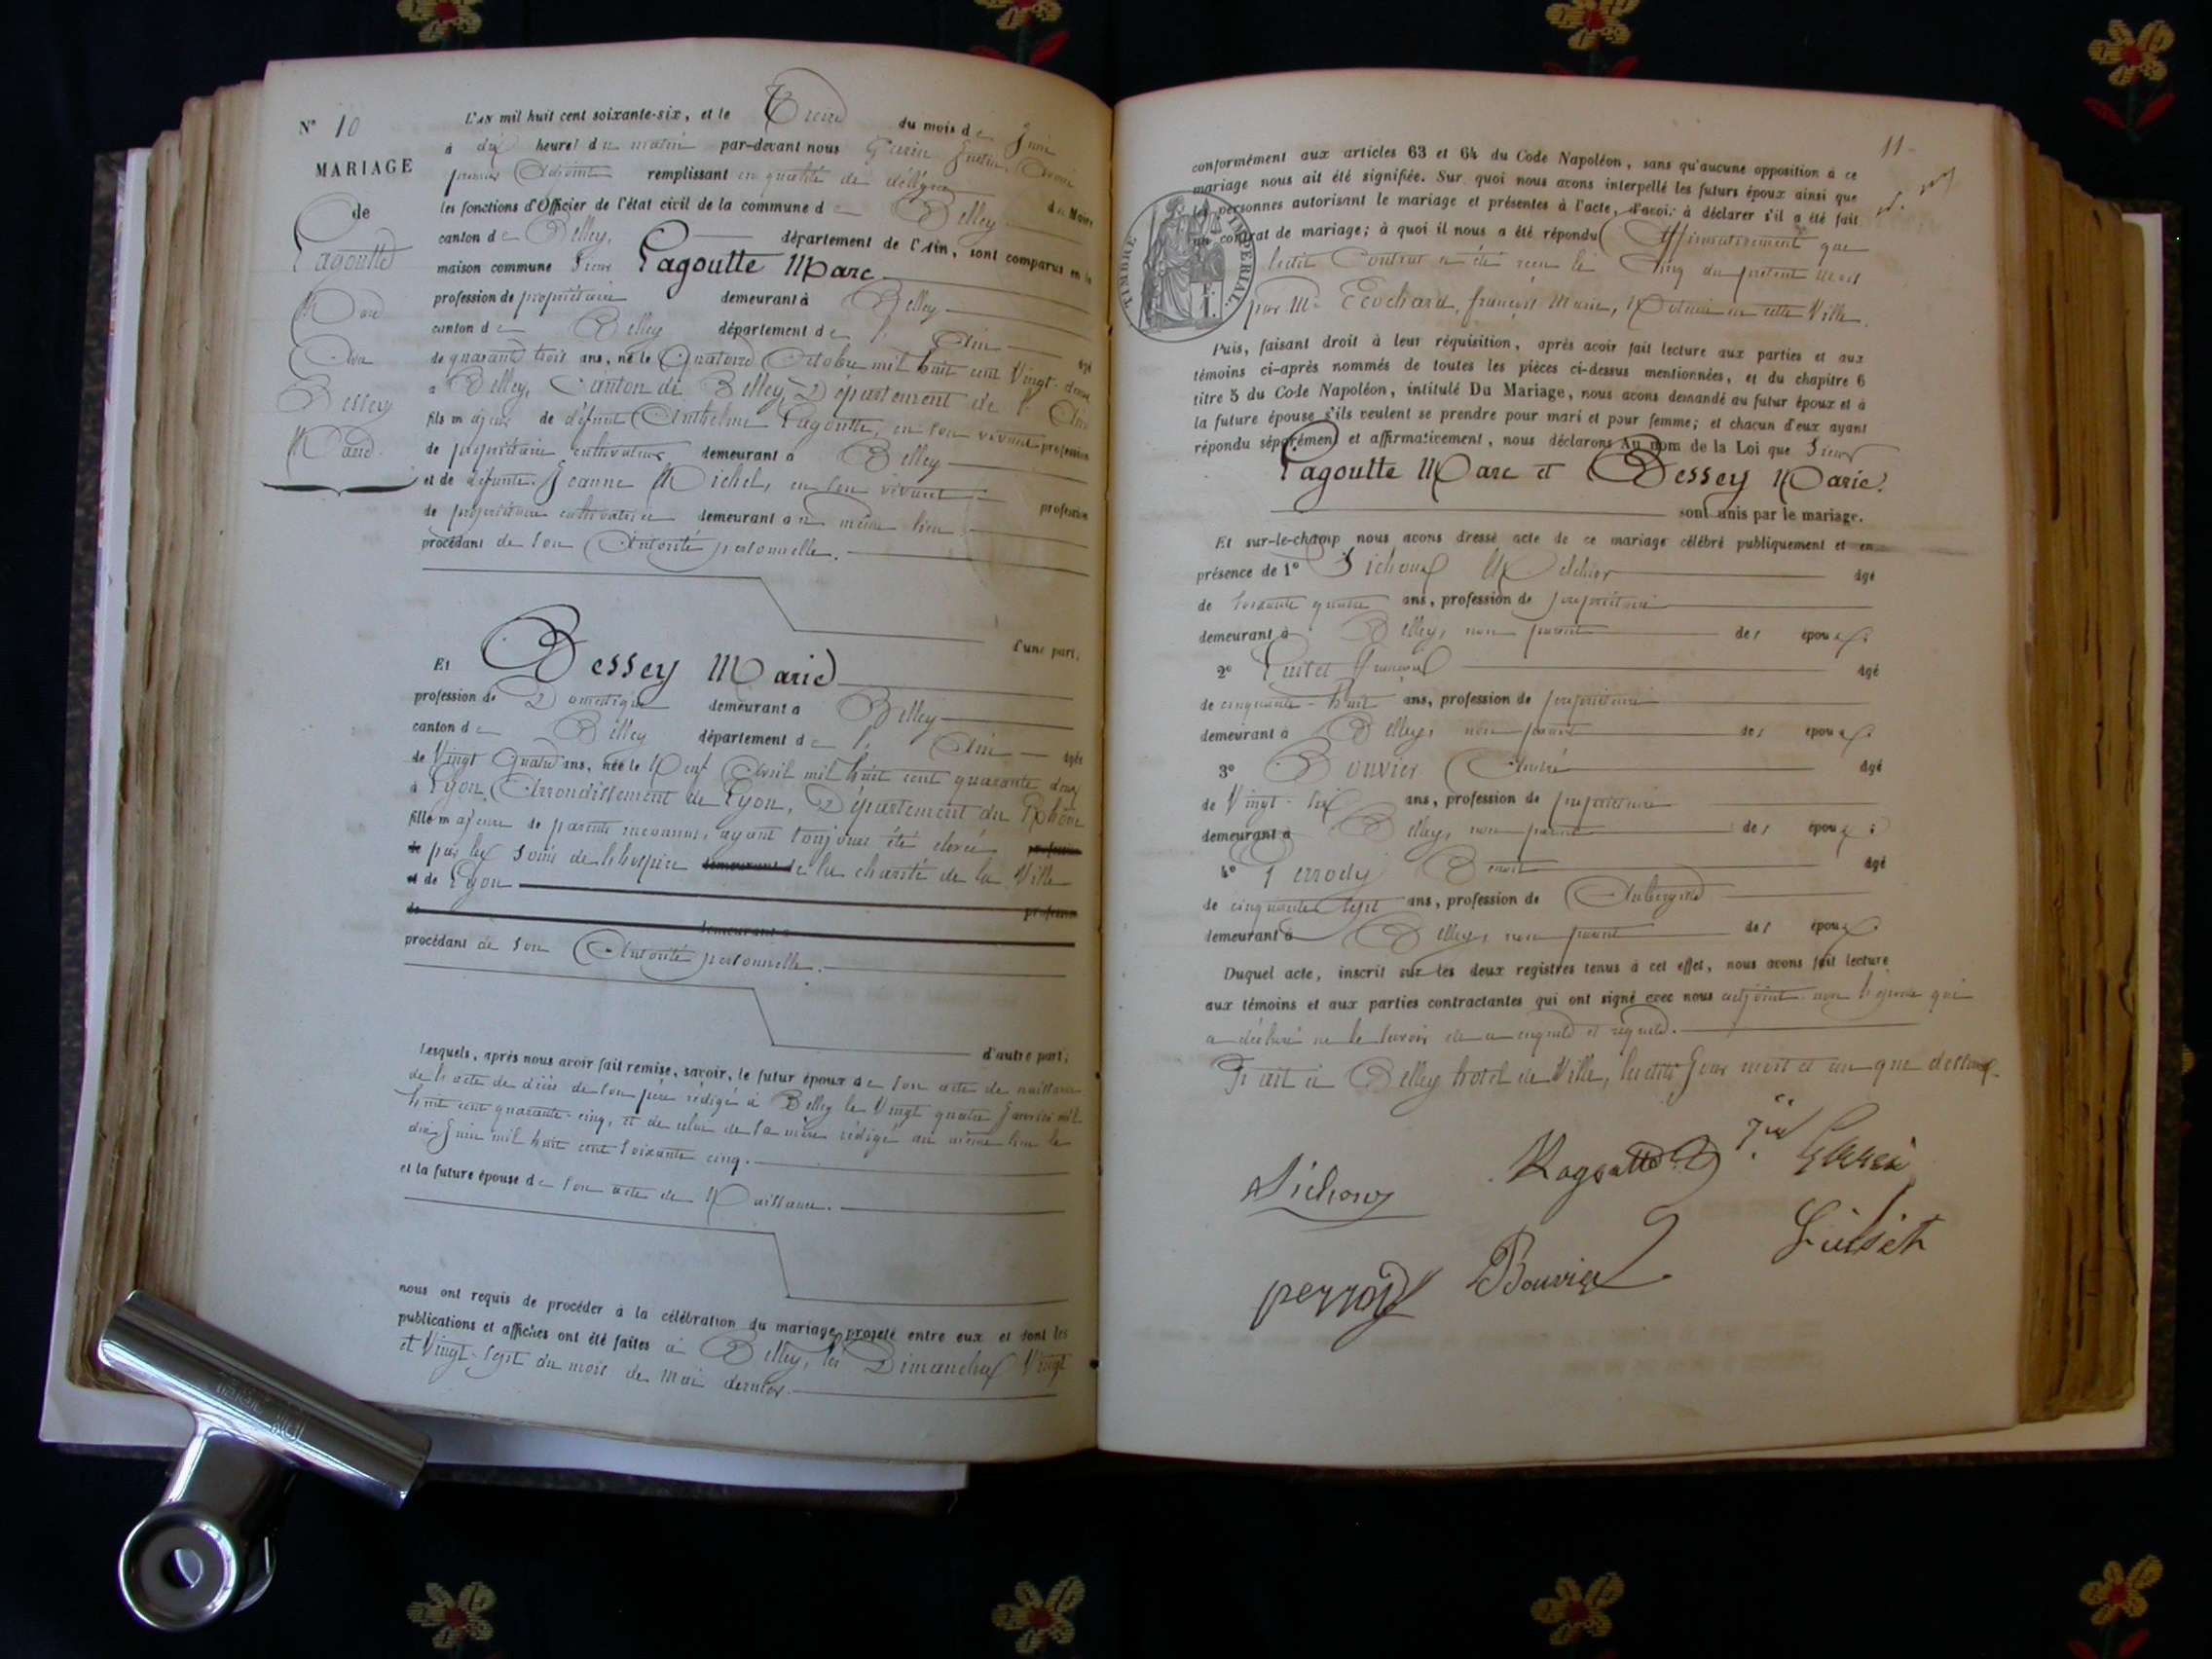 N° 10
MARIAGE
de
Lagoutte
Marc
Avec
Dessey
Marie.
L'AN mil huit cent soixante-six, et le Treize du mois de Juin
à dix heures du matin par-devant nous
premier Adjoint remplissant en qualité de délégué du Maire
les fonctions d'Officier de l'état civil de la commune de Belley
canton de Belley, département de l'Ain, sont comparus en la
maison commune Sieur Lagoutte Marc
profession de propriétaire demeurant à Belley
canton de Belley département de l'Ain âgé
de quarante trois ans, né le Quatorze Octobre mil huit cent Vingt-deux
à Belley, Canton de Belley, Département de l'Ain
fils majeur de défunt Anthelme Lagoutte, en son vivant profession
de propriétaire cultivateur demeurant à Belley
et de défunte Jeanne Michel, en son vivant profession
de propriétaire cultivatrice demeurant au même lieu
procédant de son Autorité personnelle.
d'une part;
Et Dessey Marie
profession de Domestique demeurant à Belley
canton de Belley département de l'Ain âgée
de Vingt Quatre ans, née le Neuf Avril mil huit cent quarante deux
à Lyon, Arrondissement de Lyon, Département du Rhône
fille majeure de parents inconnus, ayant toujours été élevée profession
de par les soins de l'hospice demeurant de la charité de la Ville
et de Lyon
de demeurant à profession
procédant de son Autorité personnelle.
d'autre part;
Lesquels, après nous avoir fait remise, savoir, le futur époux de son acte de naissance
de l'acte de décès de son père rédigé à Belley le Vingt quatre Janvier mil
huit cent quarante-cinq, et de celui de sa mère rédigé au même lieu le
dix Juin mil huit cent soixante cinq.
et la future épouse de son acte de Naissance.
nous ont requis de procéder à la célébration du mariage projeté entre eux et dont les
publications et affiches ont été faites à Belley, les Dimanches Vingt
et Vingt-Sept du mois de Mai dernier.
11
conformément aux articles 63 et 64 du Code Napoléon, sans qu'aucune opposition à ce
mariage nous ait été signifiée. Sur quoi nous avons interpellé les futurs époux ainsi que
les personnes autorisant le mariage et présentes à l'acte, d'avoir à déclarer s'il a été fait
un contrat de mariage; à quoi il nous a été répondu Affirmativement que
ledit Contrat a été reçu le Cinq du présent mois
par Me Evochard, françois Marie, Notaire en cette Ville.
TIMBRE IMPÉRIAL
Puis, faisant droit à leur réquisition, après avoir fait lecture aux parties et aux
témoins ci-après nommés de toutes les pièces ci-dessus mentionnées, et du chapitre 6
titre 5 du Code Napoléon, intitulé Du Mariage, nous avons demandé au futur époux et à
la future épouse s'ils veulent se prendre pour mari et pour femme; et chacun d'eux ayant
répondu séparément et affirmativement, nous déclarons Au nom de la Loi que Sieur
Lagoutte Marc et Dessey Marie.
sont unis par le mariage.
Et sur-le-champ nous avons dressé acte de ce mariage célébré publiquement et en
présence de 1° Sichoux Melchior âgé
de soixante quatre ans, profession de propriétaire
demeurant à Belley, non parent des époux;
2° Luiset françois âgé
de cinquante-huit ans, profession de propriétaire
demeurant à Belley, non parent des époux;
3° Bouvier André âgé
de Vingt-six ans, profession de propriétaire
demeurant à Belley, non parent des époux;
4° Perrody Benoit âgé
de cinquante Sept ans, profession de Aubergiste
demeurant à Belley, non parent des époux
Duquel acte, inscrit sur les deux registres tenus à cet effet, nous avons fait lecture
aux témoins et aux parties contractantes qui ont signé avec nous adjoint non l'épouse qui
a déclaré ne le savoir de ce enquise et requise.
Fait à Belley hotel de Ville, lesdits Jour mois et an que dessus.
Sichoux
Lagoutte
Perrody
Bouvier
Luiset